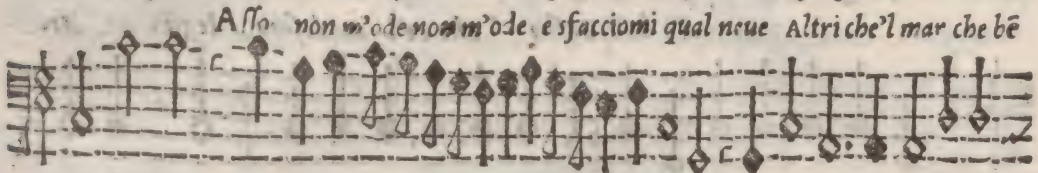 Asso non m'ode non m'ode e sfacciomi qual neue Altri che'l mar che bē